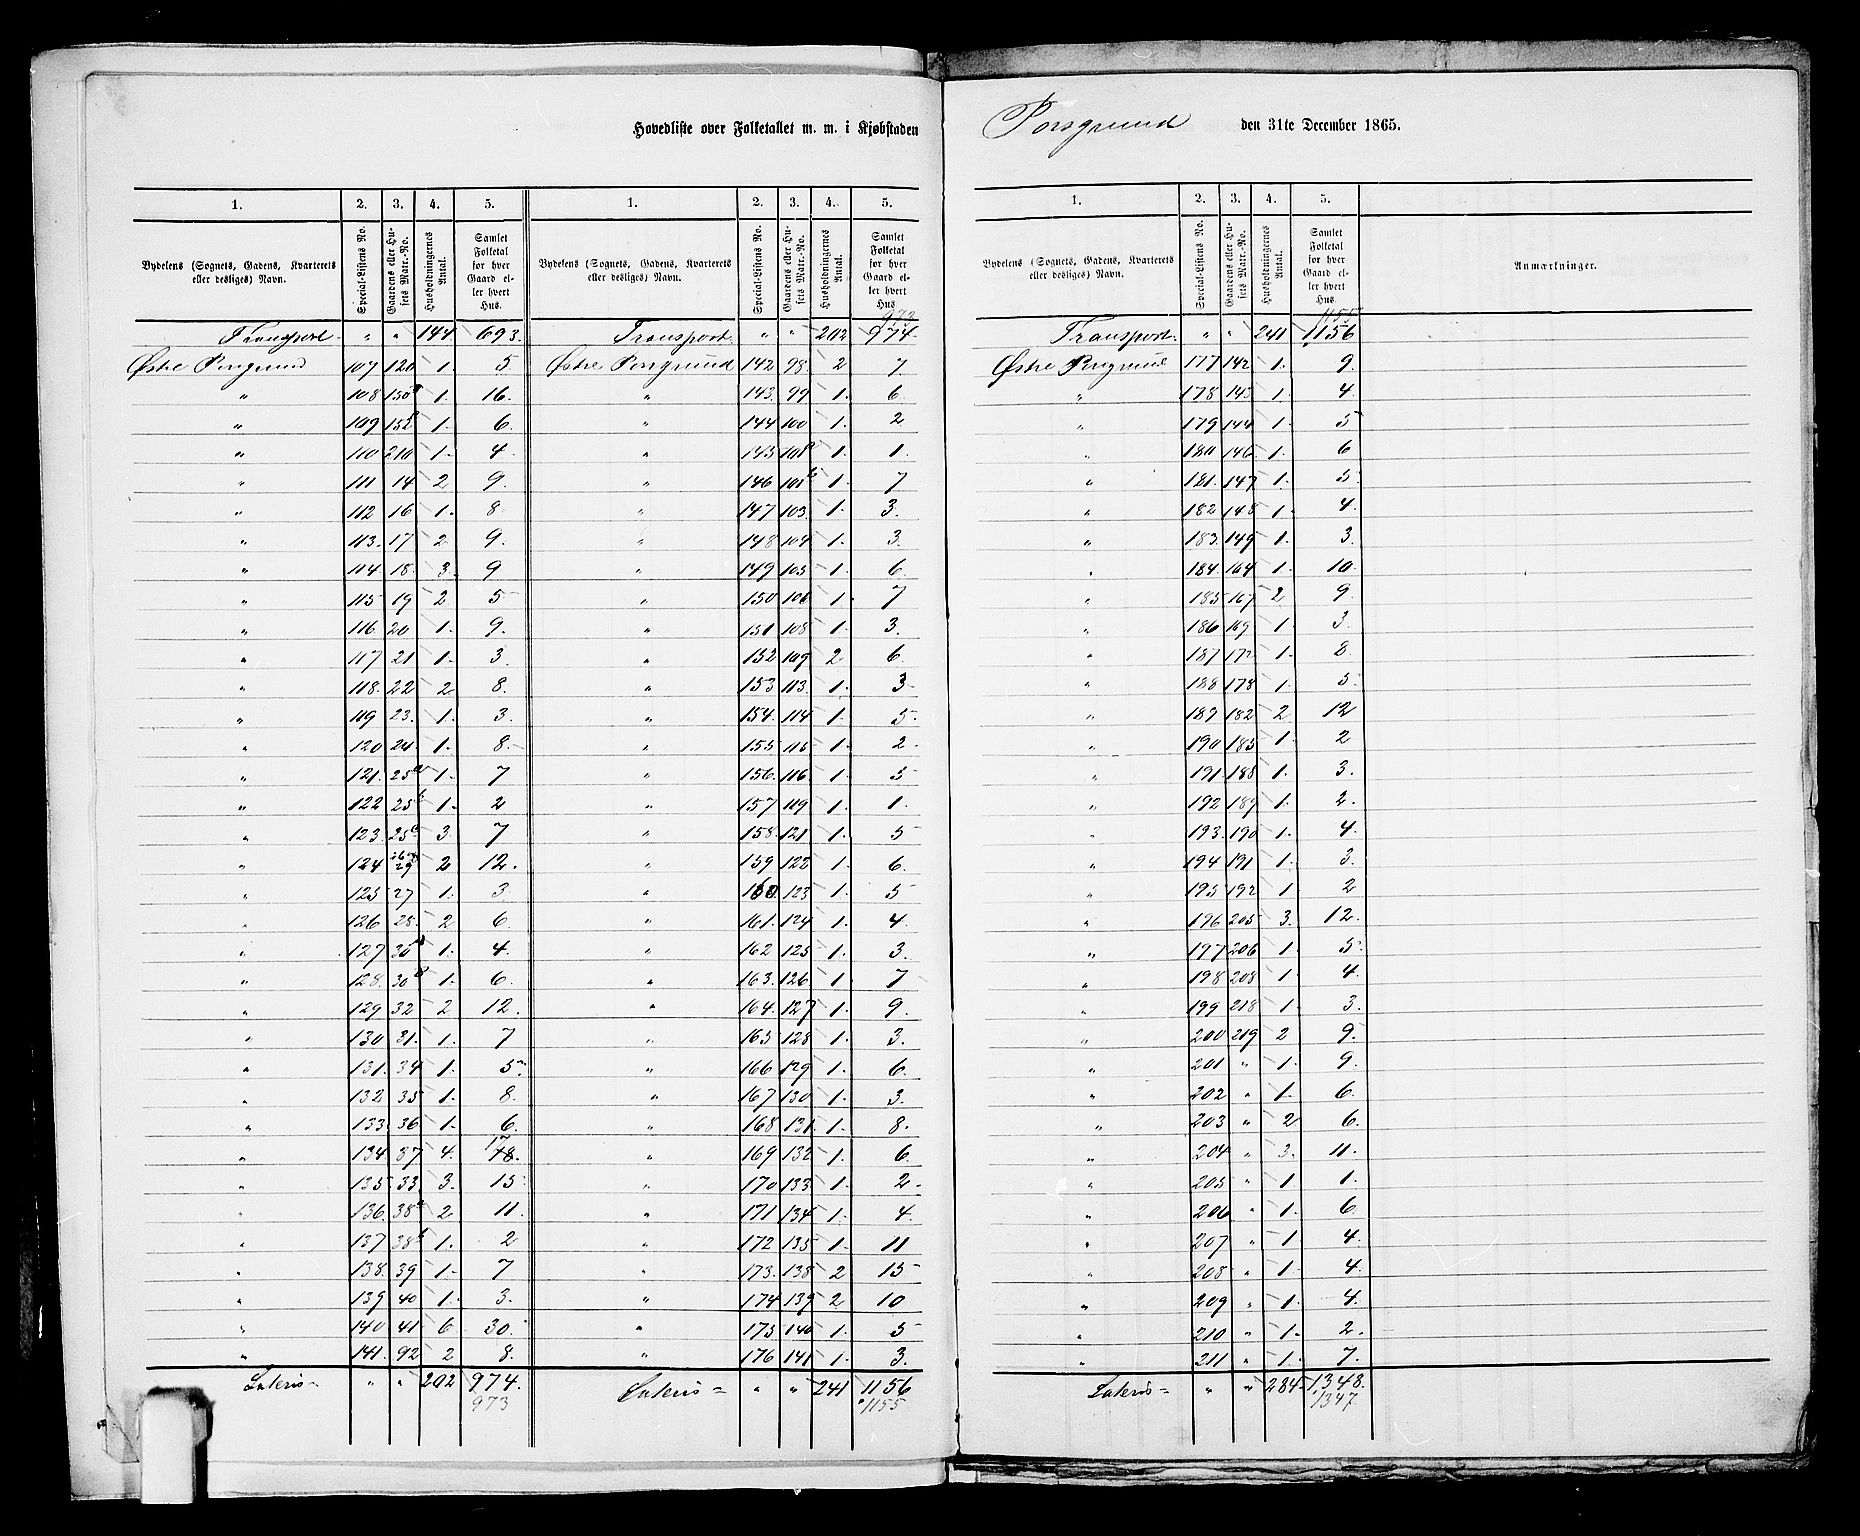 Hovedliste over Folketallet m. m. i Kjøbstaden Porsgrund den 31te December 1865.
1. 2. 3. 4. 5. 1. 2. 3. 4. 5.
Bydelens (Sognets, Gadens, Kvarterets eller desliges) Navn. Special-Listens No. Gaardens eller Husets Matr.-No. Husholdningernes Antal. Samlet Folketal for hver Gaard eller hvert Hus. Bydelens (Sognets, Gadens, Kvarterets eller desliges) Navn. Special-Listens No. Gaardens eller Husets Matr.-No. Husholdningernes Antal. Samlet Folketal for hver Gaard eller hvert Hus.
973
Transport " " 144 693. Transport " " 202 974
Østre Porsgrund 107 120 1 5 Østre Porsgrund 142 98 2 7
" 108 150a 1 16 " 143 99 1 6
" 109 152 1 6 " 144 100 1 2
" 110 210 1 4 " 145 101a 1 1
" 111 14 2 9 " 146 101b 1 7
" 112 16 1 8 " 147 103 1 3
" 113 17 2 9 " 148 104 1 3
" 114 18 3 9 " 149 105 1 6
" 115 19 2 5 " 150 106 1 7
" 116 20 1 9 " 151 108 1 3
" 117 21 1 3 " 152 109 2 6
" 118 22 2 8 " 153 113 1 3
" 119 23 1 3 " 154 114 1 5
" 120 24 1 8 " 155 115 1 2
" 121 25a 1 7 " 156 116 1 5
" 122 25b 1 2 " 157 119 1 1
" 123 25c 3 7 " 158 121 1 5
" 124 26 29 2 12 " 159 122 1 6
" 125 27 1 3 " 160 123 1 5
" 126 28 2 6 " 161 124 1 4
" 127 30 1 4 " 162 125 1 3
" 128 30 1 6 " 163 126 1 7
" 129 32 2 12 " 164 127 1 9
" 130 31 1 7 " 165 128 1 3
" 131 34 1 5 " 166 129 1 6
" 132 35 1 8 " 167 130 1 3
" 133 36 1 6 " 168 131 1 8
" 134 37 4 17 18 " 169 132 1 6
" 135 33 3 15 " 170 133 1 2
" 136 38a 2 11 " 171 134 1 4
" 137 38b 1 2 " 172 135 1 11
" 138 39 1 7 " 173 138 2 15
" 139 40 1 3 " 174 139 2 10
" 140 41 6 30 " 175 140 1 5
" 141 92 2 8 " 176 141 1 3
Lateris " " 202 974. Lateris " " 241 1156
973 1155
1. 2. 3. 4. 5.
Bydelens (Sognets, Gadens, Kvarterets eller desliges) Navn. Special-Listens No. Gaardens eller Husets Matr.-No. Husholdningernes Antal. Samlet Folketal for hver Gaard eller hvert Hus. Anmærkninger.
1155
Transport " " 241 1156
Østre Porsgrund 177 142 1 9
" 178 143 1 4
" 179 144 1 5
" 180 146 1 6
" 181 147 1 5
" 182 148 1 4
" 183 149 1 3
" 184 164 1 10
" 185 167 2 9
" 186 169 1 3
" 187 172 1 8
" 188 178 1 5
" 189 182 2 12
" 190 185 1 2
" 191 188 1 3
" 192 189 1 2
" 193 190 1 4
" 194 191 1 3
" 195 192 1 2
" 196 205 3 12
" 197 206 1 5
" 198 208 1 4
" 199 218 1 3
" 200 219 2 9
" 201 " 1 9
" 202 " 1 6
" 203 " 2 6
" 204 " 3 11
" 205 " 1 1
" 206 " 1 6
" 207 " 1 4
" 208 " 1 4
" 209 " 1 4
" 210 " 1 2
" 211 " 1 7
Lateris " " 284 1348.
1347